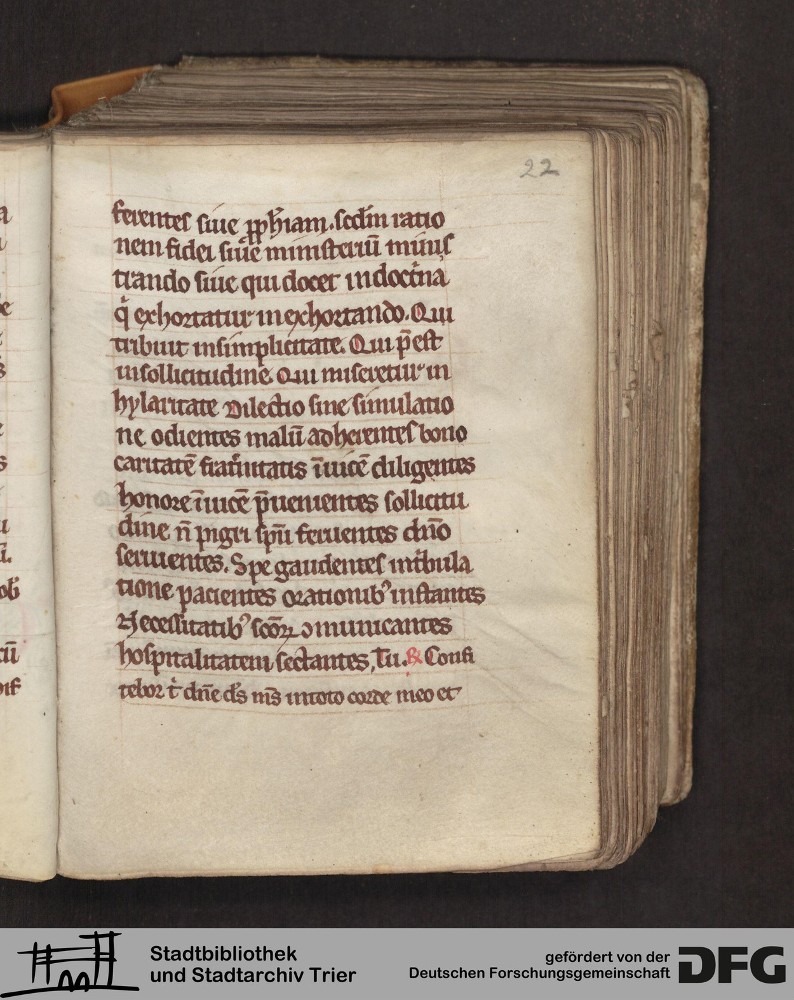 22
ferentes siue ꝓph̄iam. scd̄m ratio
nem fidei siue ministeriū minis
trando siue qui docet in doct̄na
q̇ exhortatur in exhortando. Qui
tribuit in simplicitate. Qui p̄est
in sollicitudine. Qui miseretur in
hylaritate Dilectio sine simulatio
ne odientes malū adherentes bono
caritatē frat̄nitatis īuicē diligentes
honore īuicē p̄uenientes sollicitu
dine n̄ pigri sp̄u feruentes dn̄o
seruientes. Spe gaudentes in t̄bula
tione pacientes orationibꝰ instantes
Necessitatibꝰ scōꝝ ꝯmunicantes
hospitalitatem sectantes, Tu. R Confi
tebor t̄ dn̄e ds̄ ms̄ in toto corde meo et
Stadtbibliothek
und Stadtarchiv Trier
gefördert von der
Deutschen Forschungsgemeinschaft
DFG